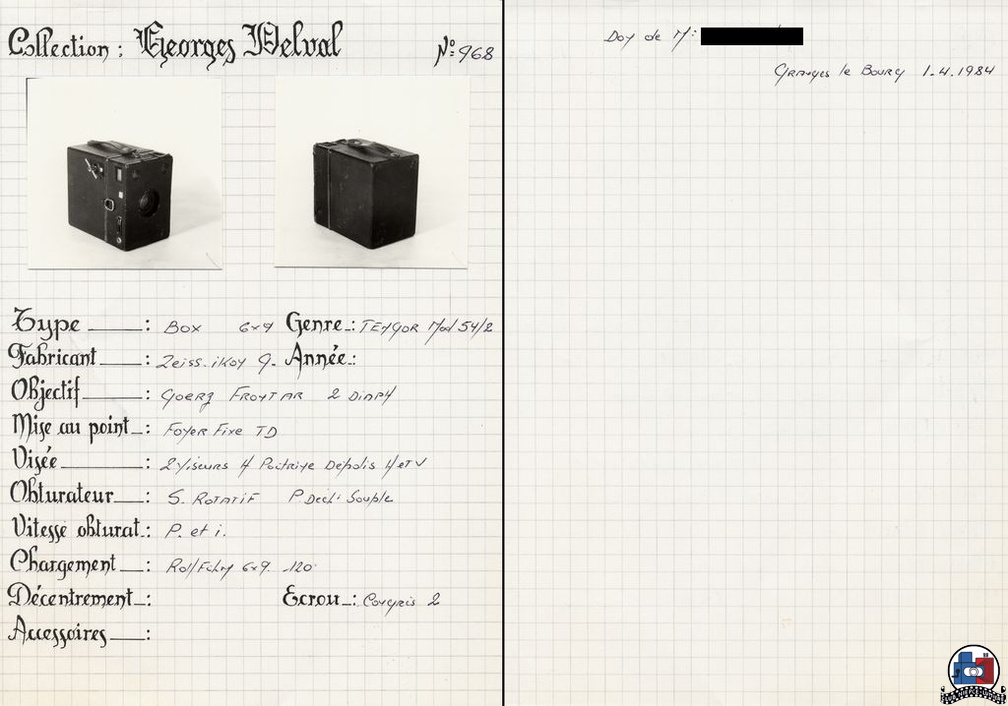 Collection : Georges Delval Nº 968
Type : Box 6x9 Genre : TENGOR Mod 54/2
Fabricant : Zeiss.iKoN G. Année :
Objectif : Goerz FRONTAR 2 DiAPH
Mise au point : Foyer Fixe TD
Visée : 2 Viseurs H Poitrine Depolis H et V
Obturateur : S. ROTATIF P Decl' Souple
Vitesse obturat. : P. et i.
Chargement : Roll/Film 6x9 120
Décentrement : Ecrou : Congris 2
Accessoires :
Don de M :
GRANges le Bourg 1.4.1984